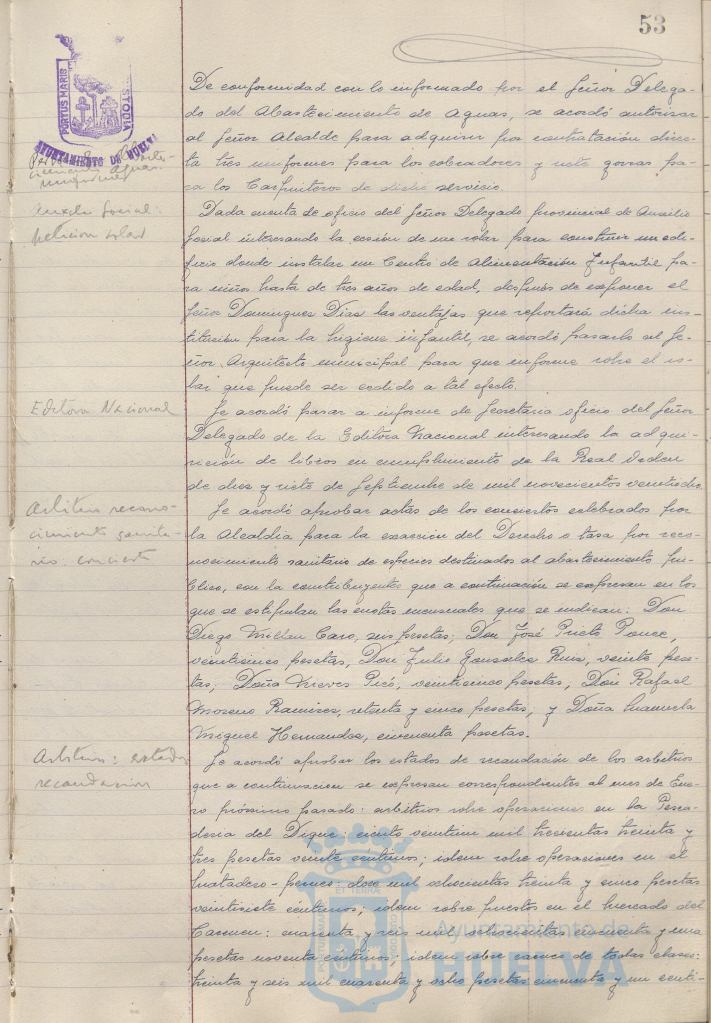 53
PORTUS MARIS
CUSTODIA
AYUNTAMIENTO DE HUELVA
De conformidad con lo informado por el Señor Delega-
do del Abastecimiento de Aguas, se acordó autorizar
al Señor Alcalde para adquirir por contratación direc-
ta tres uniformes para los cobradores y siete gorras pa-
ra los Carpinteros de dicho servicio.
Auxilio Social:
peticion solar
Dada cuenta de oficio del Señor Delegado Provincial de Auxilio
Social interesando la cesión de un solar para construir un edi-
ficio donde instalar un Centro de Alimentación Infantil pa-
ra niños hasta de tres años de edad, después de exponer el
Señor Dominguez Diaz las ventajas que reportará dicha ins-
titución para la higiene infantil, se acordó pasarlo al Se-
ñor Arquitecto municipal para que informe sobre el so-
lar que puede ser cedido a tal efecto.
Editora Nacional
Se acordó pasar a informe de Secretaria oficio del Señor
Delegado de la Editora Nacional interesando la adqui-
sición de libros en cumplimiento de la Real Orden
de diez y siete de Septiembre de mil novecientos veintidos.
Arbitrios recono-
cimiento sanita-
rio: concierto
Se acordó aprobar actas de los conciertos celebrados por
la Alcaldia para la exacción del Derecho o tasa por reco-
nocimiento sanitario de especies destinadas al abastecimiento pú-
blico, con los contribuyentes que a continuación se expresan en los
que se estipulan las cuotas mensuales que se indican: Don
Diego Millan Caro, seis pesetas; Don José Prieto Ponce,
veinticinco pesetas, Don Julio Gonzalez Ruiz, veinte pese-
tas; Doña Nieves Picó, veinticinco pesetas, Don Rafael
Moreno Ramirez, setenta y cinco pesetas; y Doña Manuela
Miguel Hernandez, cincuenta pesetas.
Arbitrios: estados
recaudacion
Se acordó aprobar los estados de recaudación de los arbitrios
que a continuacion se expresan correspondientes al mes de Ene-
ro próximo pasado: arbitrios sobre operaciones en la Pesca-
deria del Dique: ciento veintiun mil trescientas treinta y
tres pesetas veinte centimos; idem sobre operaciones en el
Matadero- doce mil ochocientas treinta y cinco pesetas
veintisiete céntimos; idem sobre puestos en el mercado del
Carmen: cuarenta y seis mil cincuenta y una
pesetas noventa céntimos; idem sobre carnes de todas clases:
treinta y seis mil cuarenta y ocho pesetas cincuenta y un centi-
Ayuntamiento de
HUELVA